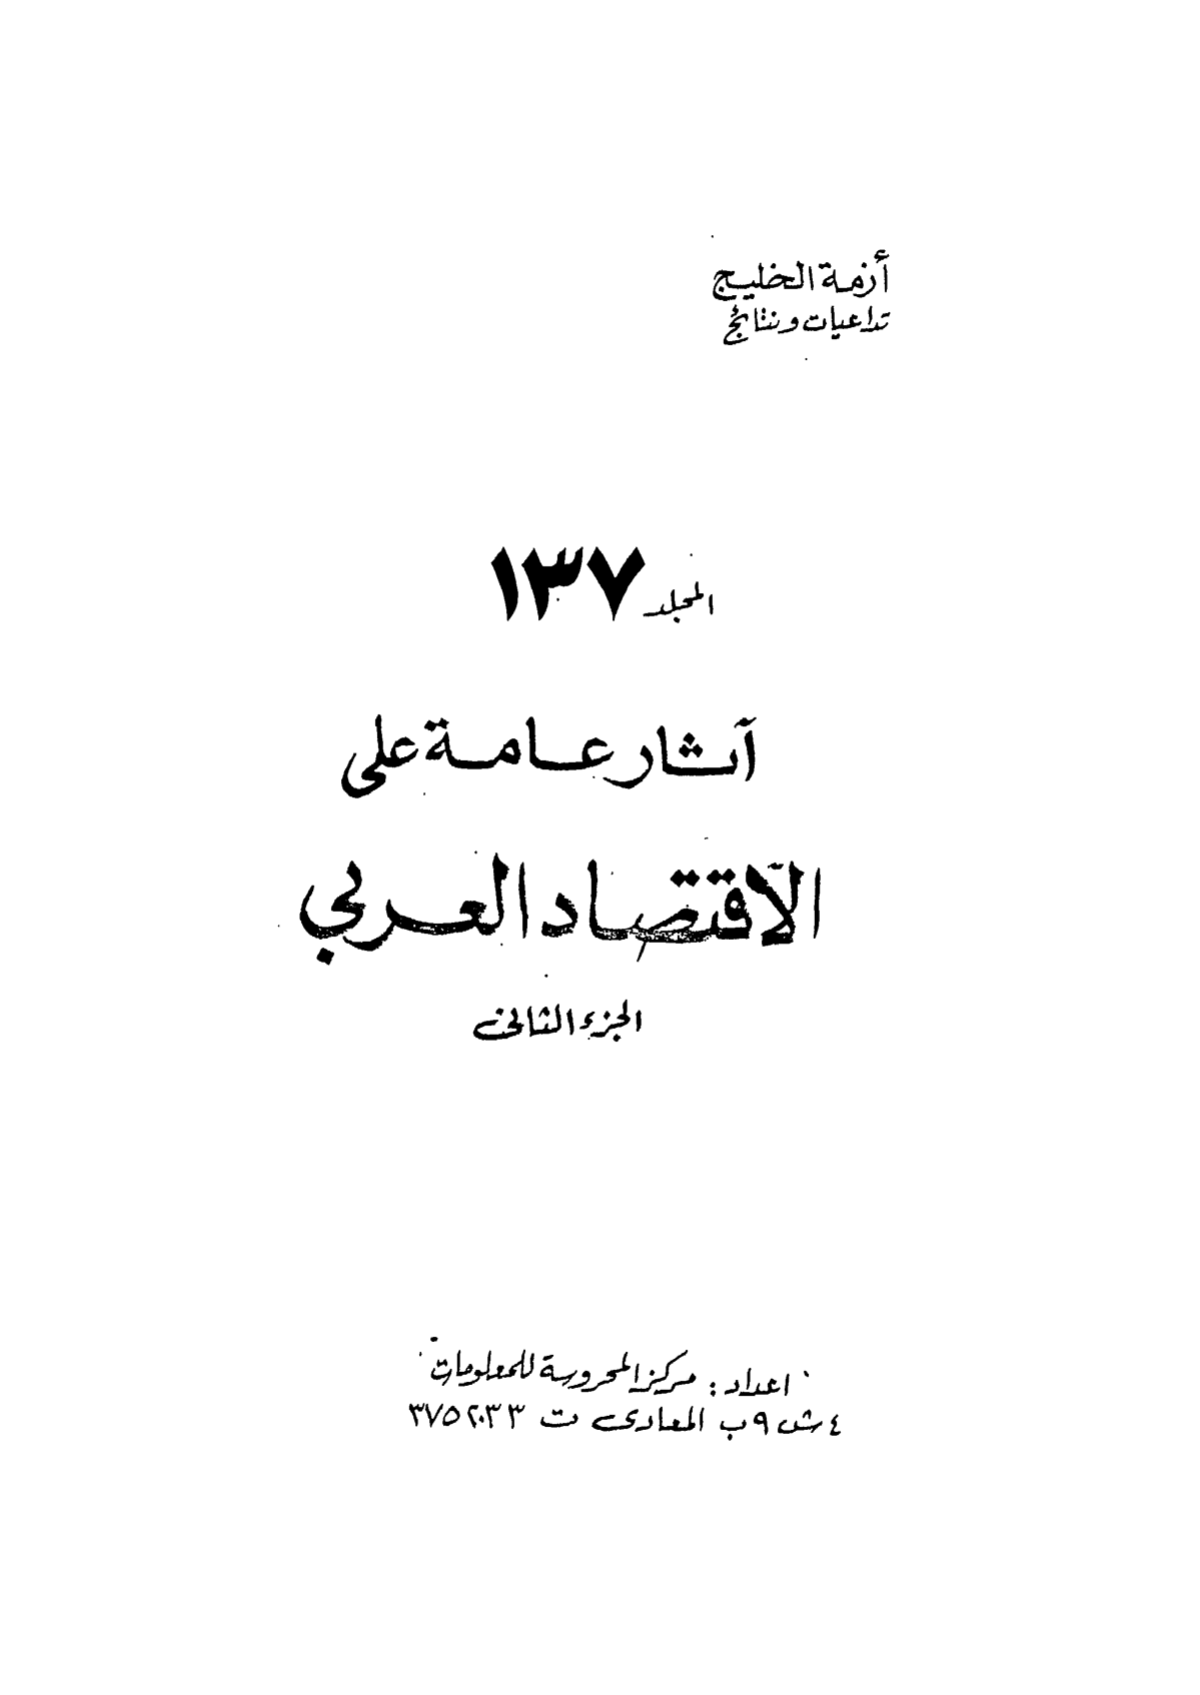 أزمة الخليج
تداعيات ونتائج
المجلد ١٣٧
آثار عامة على
الاقتصاد العربي
الجزء الثاني
اعداد : مركز المحروسة للمعلومات
٤ ش ٩ ب المعادى ت ٣٧٥٢٠٣٣